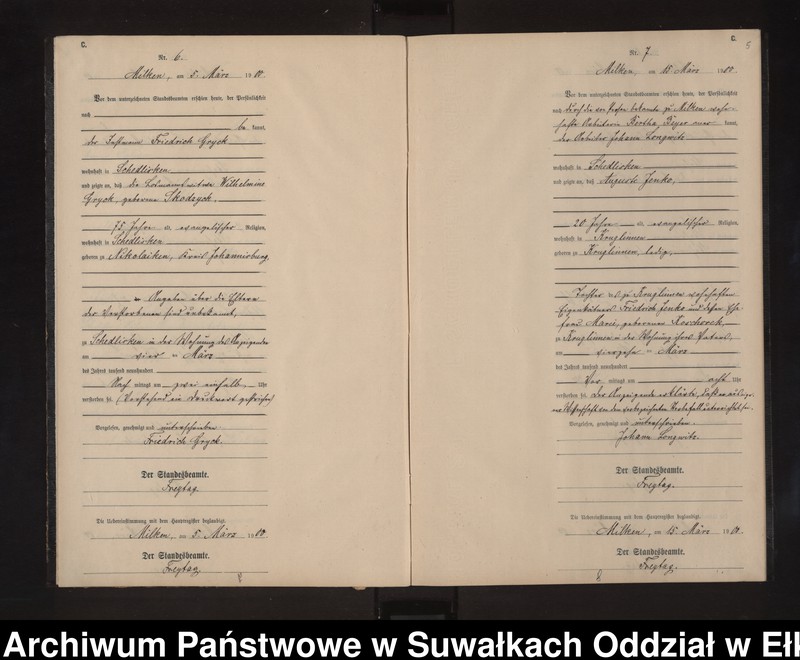 C.
Nr. 6.
Milken, am 5. März 1900.
Vor dem unterzeichneten Standesbeamten erschien heute, der Persönlichkeit
nach
be kannt,
der Instmann Friedrich Gryck
wohnhaft in Schedlisken
und zeigte an, daß die Losmannswitwe Wilhelmine
Gryck, geborene Skodzyck.
75 Jahre alt, evangelischer Religion,
wohnhaft in Schedlisken
geboren zu Nikolaiken, Kreis Johannisburg,
Angaben über die Eltern
der Verstorbenen sind unbekannt,
zu Schedlisken in der Wohnung des Anzeigenden
am vier ten März
des Jahres tausend neunhundert
Nach mittags um zwei einhalb Uhr
verstorben sei. (Vorstehend ein Druckwort gestrichen)
Vorgelesen, genehmigt und unterschrieben
Friedrich Gryck.
Der Standesbeamte.
Freytag.
Die Uebereinstimmung mit dem Hauptregister beglaubigt.
Milken, am 5. März 1900.
Der Standesbeamte.
Freytag.
C.
5
Nr. 7
Milken, am 15. März 1900.
Vor dem unterzeichneten Standesbeamten erschien heute, der Persönlichkeit
nach durch die von Person bekannte zu Milken wohn-
hafte Arbeiterin Bertha Beyer aner kannt,
der Arbeiter Johann Longwitz
wohnhaft in Schedlisken
und zeigte an, daß Auguste Jenko,
20 Jahre alt, evangelischer Religion,
wohnhaft in Kruglinnen
geboren zu Kruglinnen, ledig,
Tochter des zu Kruglinnen wohnhaften
Eigenkätners Friedrich Jenko und dessen Ehe-
frau Marie, geborenen Koschorek,
zu Kruglinnen in der Wohnung ihres Vaters,
am vierzehn ten März
des Jahres tausend neunhundert
Vor mittags um acht Uhr
verstorben sei. Der Anzeigende erklärte, daß er aus eige-
ner Wissenschaft von dem vorbezeichneten Sterbefall unterrichtet sei.
Vorgelesen, genehmigt und unterschrieben
Johann Longwitz.
Der Standesbeamte.
Freytag.
Die Uebereinstimmung mit dem Hauptregister beglaubigt.
Milken, am 15. März 1900.
Der Standesbeamte.
Freytag.
Archiwum Państwowe w Suwałkach Oddział w Ełk